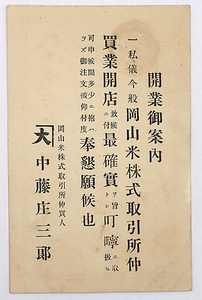 開業御案內
一私儀今般岡山米株式取引所仲
買業開店致候ニ付最確實ヲ旨トシ叮嚀ニ取扱
可申候間多少ニ抱ハラズ御注文被仰付度奉懇願候也
岡山米株式取引所仲買人
大 中藤庄三郎